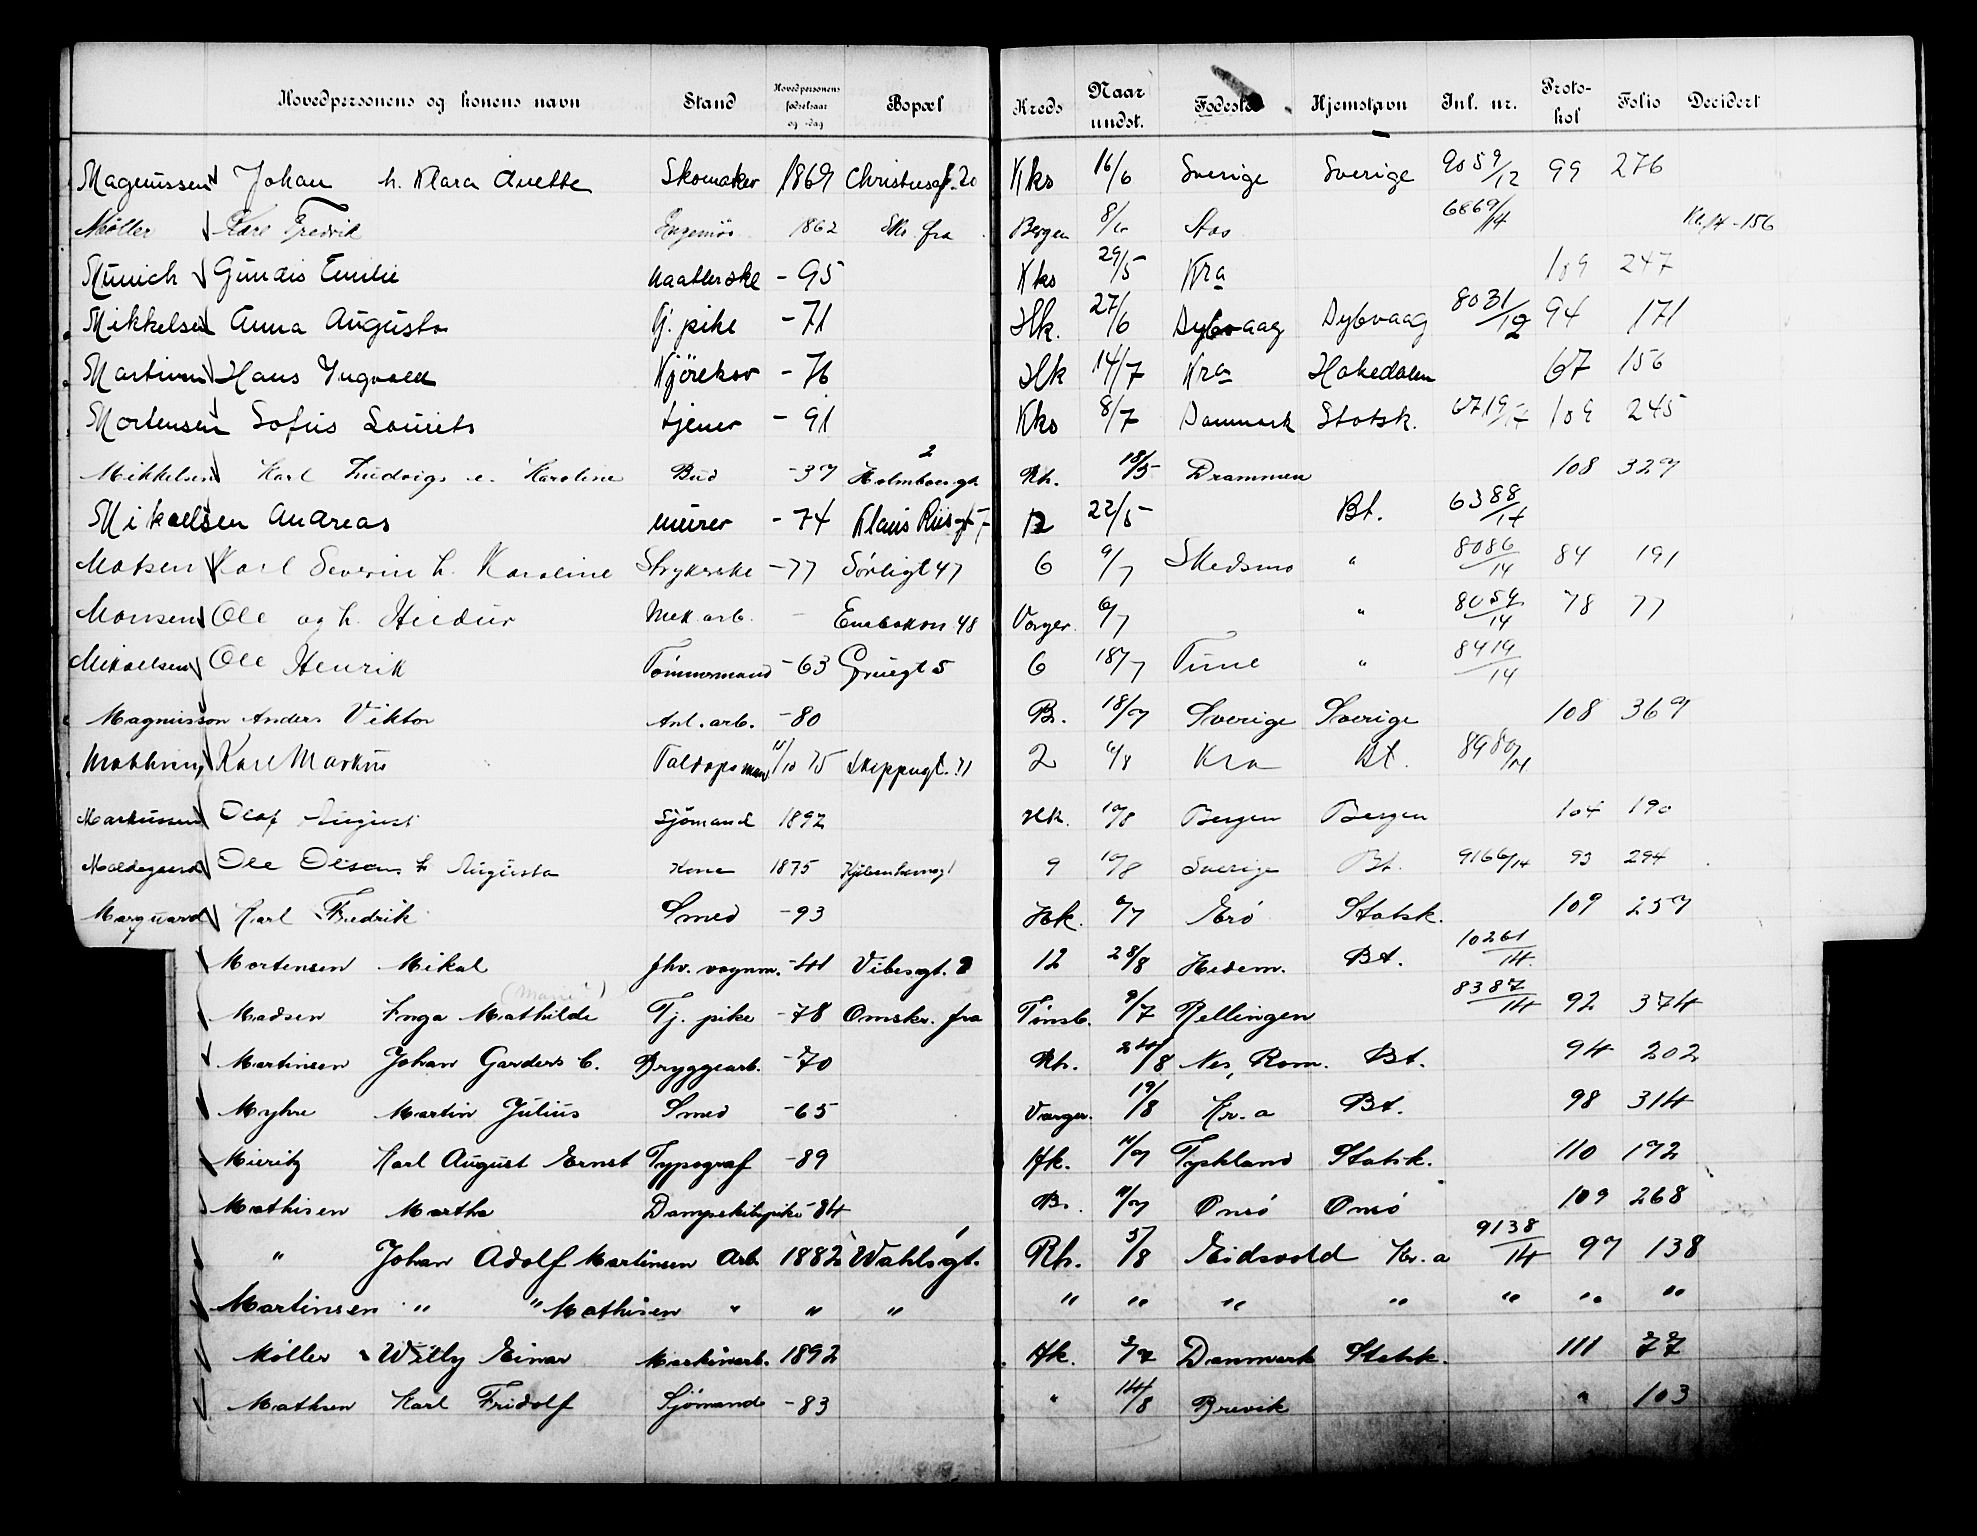 Hovedpersonens og konens navn Stand Hovedpersonens fødselsaar og -dag Bopæl Kreds Naar undst. Fødested Hjemstavn Inl. nr. Protokol Folio Decidert
Magnussen Johan h. Klara Anette Skomaker 1869 Christiesgt. 20 Kks 16/6 Sverige Sverige 9059/12 99 276
Møller Karl Fredrik 1862 fra Bergen 8/6 6869/14 156
Munich Gundis Emilie Maalerske - 95 Kks 29/5 Kra 109 247
Mikkelsen Anna Augusta tj. pike - 71 Hk. 27/6 Dybvaag Dybvaag 8031/12 94 171
Martinsen Hans Ingvald Kjørekar - 76 Hk 14/7 Kra Hakedalen 67 156
Mortensen Sofus Laurits tjener - 91 Kks 8/7 Danmark Statsk. 6719/14 109 245
Mikkelsen Karl Ludvig e. Karoline Bud - 37 Holmboesgt. 2 Rh. 18/5 Drammen 108 329
Mikaelsen Andreas murer - 74 Klaus Riisgt 22/5 Bt. 6388/14
Matsen Karl Severin h. Karoline Strykerske - 77 Sørligt 47 6 9/7 Skedsmo " 8086/14 84 191
Monsen Ole og h. Mek. arb. - Enebakkv. 48 Varger. 6/7 " 8059/14 78 77
Mikaelsen Ole Henrik Tømmermand - 63 Gruegt 5 6 18/7 Tune " 8419/14
Magnusson Anders Viktor Anl. arb. - 80 B. 18/7 Sverige Sverige 108 369
Karl Markus 11/10 75 Skippergt. 2 /8 Kra Bt. 89
Markussen Olaf August Sjømand 1892 Hk. 10/8 Bergen Bergen 104 190
Maldegaard Ole Olsens h Augusta Kone 1875 Kjøbenhavngt 9 10/8 Sverige Bt. 9166/14 93 294
Marquard Karl Fredrik Smed - 93 Hk. 6/7 Erø Statsk. 109 257
Mortensen Mikal fhv. vognm. - 41 Vibesgt. 12 28/8 Hedem. Bt. 10261/14
Madsen Inga Mathilde (Marie) Tj. pike - 78 Omskr. fra Tønsb. 9/7 Rellingen 8387/14 92 374
Martinsen Johan Garders C. Bryggearb. - 70 Rh. 24/8 Nes, Rom. Bt. 94 202
Myhre Martin Julius Smed - 65 Varger. 19/8 Kr.a Bt. 98 314
Mieritz Karl August Ernst Typograf - 89 Hk. 11/7 Tyskland Statsk. 110 192
Mathisen Martha Dampskibspike - 84 B. 11/7 Onsø Onsø 109 268
" Johan Adolf Martinsen Arb. 1882 Wahlsgt. 1 Rh. 5/8 Eidsvold Kr.a 9138/14 97 138
Martinsen " " Mathisen " " " " " " " " " "
Møller Willy Einar Maskinarb. 1892 Hk. Danmark Statsk. 111 77
Mathsen Karl Fridolf Sjømand - 83 " 14/8 Brevik " 103